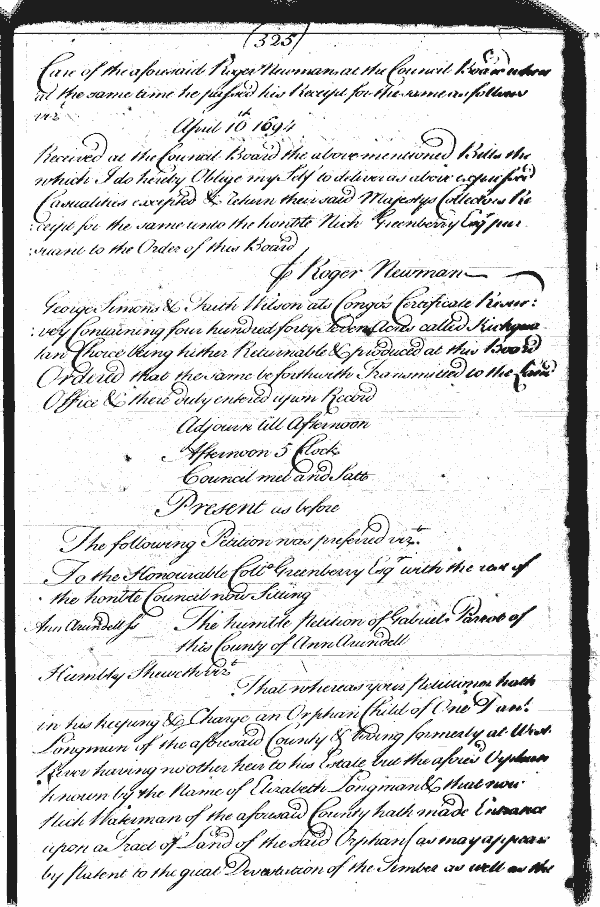 (325)
Care of the aforesaid Roger Newman at the Council Board where
at the same time he passed his Receipt for the same as follows
vizt
April 10th 1694
Received at the Council Board the above mentioned Bills the
which I do hereby Oblige my Self to deliver as above expressed
Casualties excepted & return their said Majestys Collectors Re
ceipt for the same unto the honble Nich Greenberry Esqr pur
suant to the Order of this Board
Roger Newman
George Simons & Faith Wilson als Congos Certificate Resur:
:vey Containing four hundred forty Seven Acres called
lan Choice being hither Returnable & produced at this Board
Ordered that the same be forthwith Transmitted to the Land
Office & there duly entered upon Record
Adjourn till Afternoon
Afternoon 5 Clock
Council met and Satt
Present as before
The following Petition was preferred vizt
To the Honourable Collo Greenberry Esqr with the rest of
the honble Council now Sitting
Ann Arundell ss The humble Petition of Gabriel Parrot of
this County of Ann Arundell
Humbly Sheweth vizt
That whereas your Petitioner hath
in his keeping & Charge an Orphan Child of One
Longman of the aforesaid County & living formerly at West
River having no other heir to his Estate but the aforesd Orphan
known by the Name of Elizabeth Longman & that now
Nich Waterman of the aforesaid County hath made Entrance
upon a Tract of Land of the said Orphan (as may appear
by Patent to the great Devastation of the Timber as well as the